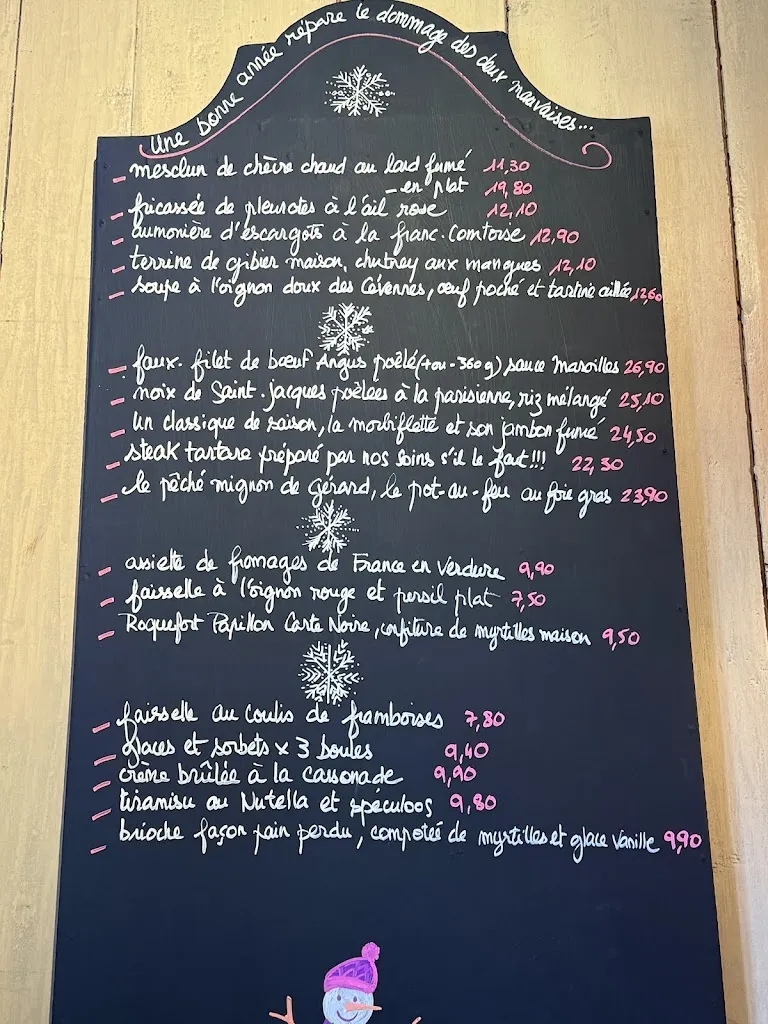 Une bonne année répare le dommage des deux mauvaises...
mesclun de chèvre chaud au lard fumé 11,30
- en plat 19,80
fricassée de pleurotes à l'ail rose 12,10
aumonière d'escargots à la franc-comtoise 12,90
terrine de gibier maison, chutney aux mangues 12,10
soupe à l'oignon doux des Cévennes, œuf poché et tartine aillée 12,60
faux-filet de bœuf Angus poêlé (+ou-360g) sauce Maroilles 26,90
noix de Saint-jacques poêlées à la parisienne, riz mélangé 25,10
un classique de saison, la morbiflette et son jambon fumé 24,50
steak tartare préparé par nos soins s'il le faut!!! 22,30
le pêché mignon de Gérard, le pot-au-feu au foie gras 23,90
assiette de fromages de France en verdure 9,90
faisselle à l'oignon rouge et persil plat 7,50
Roquefort Papillon Carte Noire, confiture de myrtilles maison 9,50
faisselle au coulis de framboises 7,80
glaces et sorbets x 3 boules 9,40
crème brûlée à la cassonade 9,90
tiramisu au Nutella et spéculoos 9,80
brioche façon pain perdu, compotée de myrtilles et glace vanille 9,90